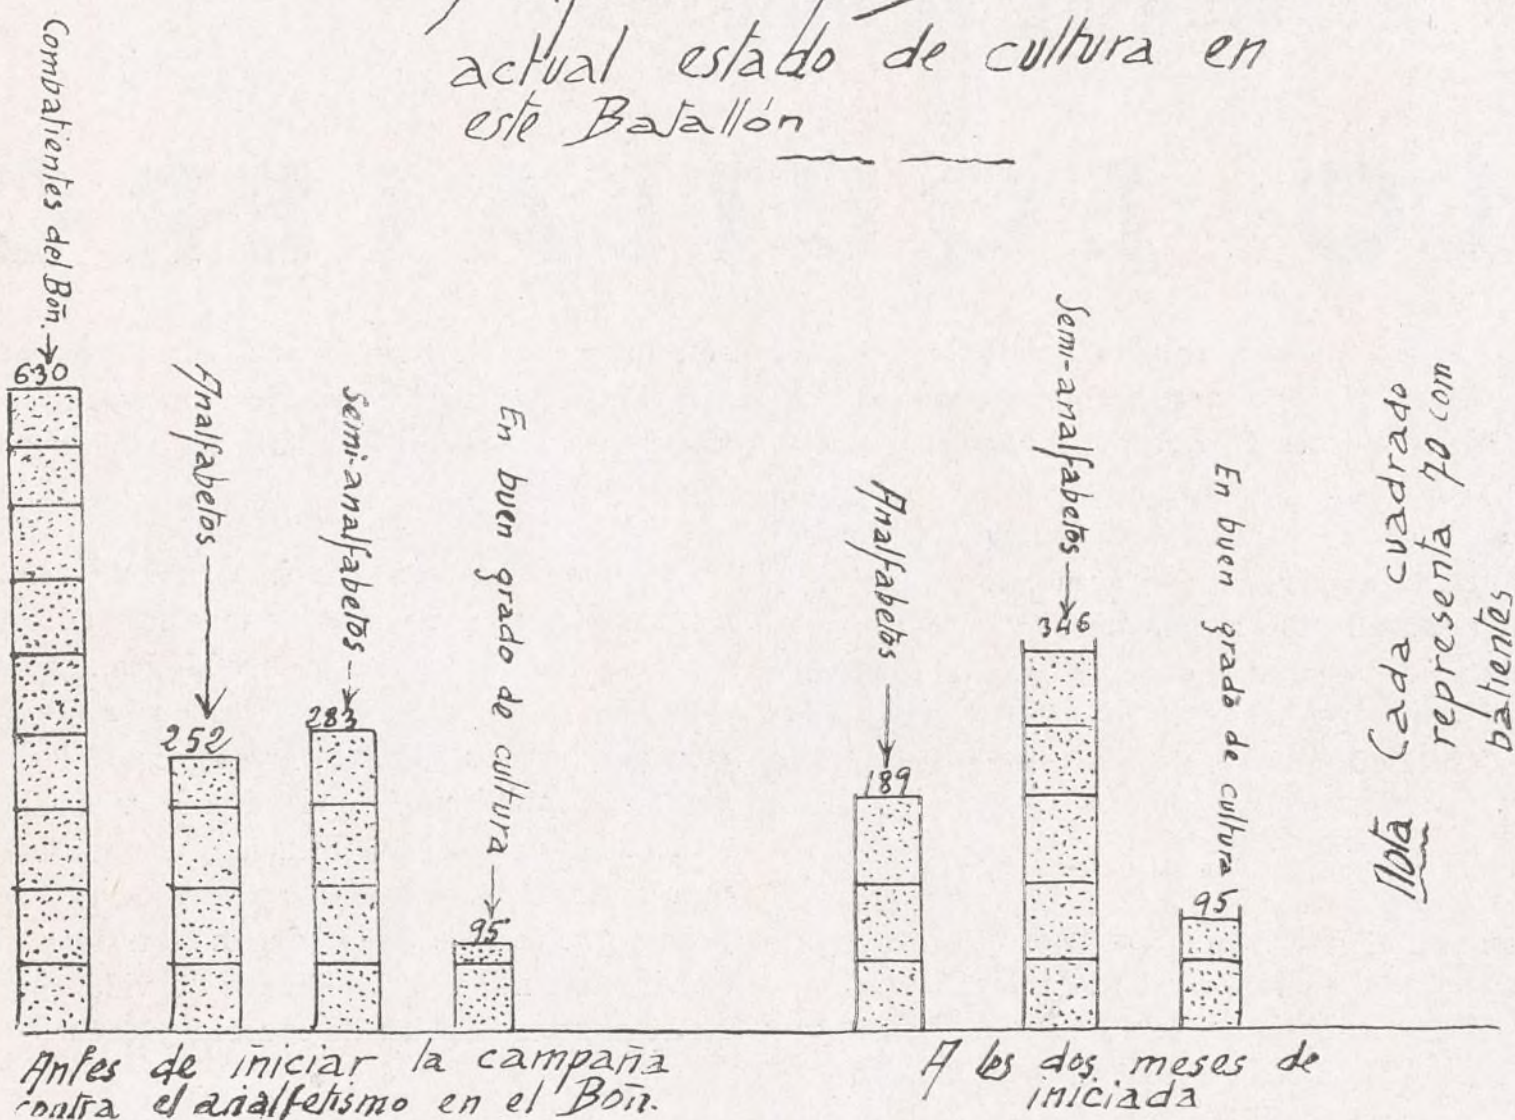 actual estado de cultura en
este Batallón
Combatientes del Bōn.
630
Analfabetos
252
Semi-analfabetos
283
En buen grado de cultura
95
Analfabetos
189
Semi-analfabetos
346
En buen grado de cultura
95
Nota Cada cuadrado
representa 70 com
batientes
Antes de iniciar la campaña
contra el analfetismo en el Bōn.
A los dos meses de
iniciada